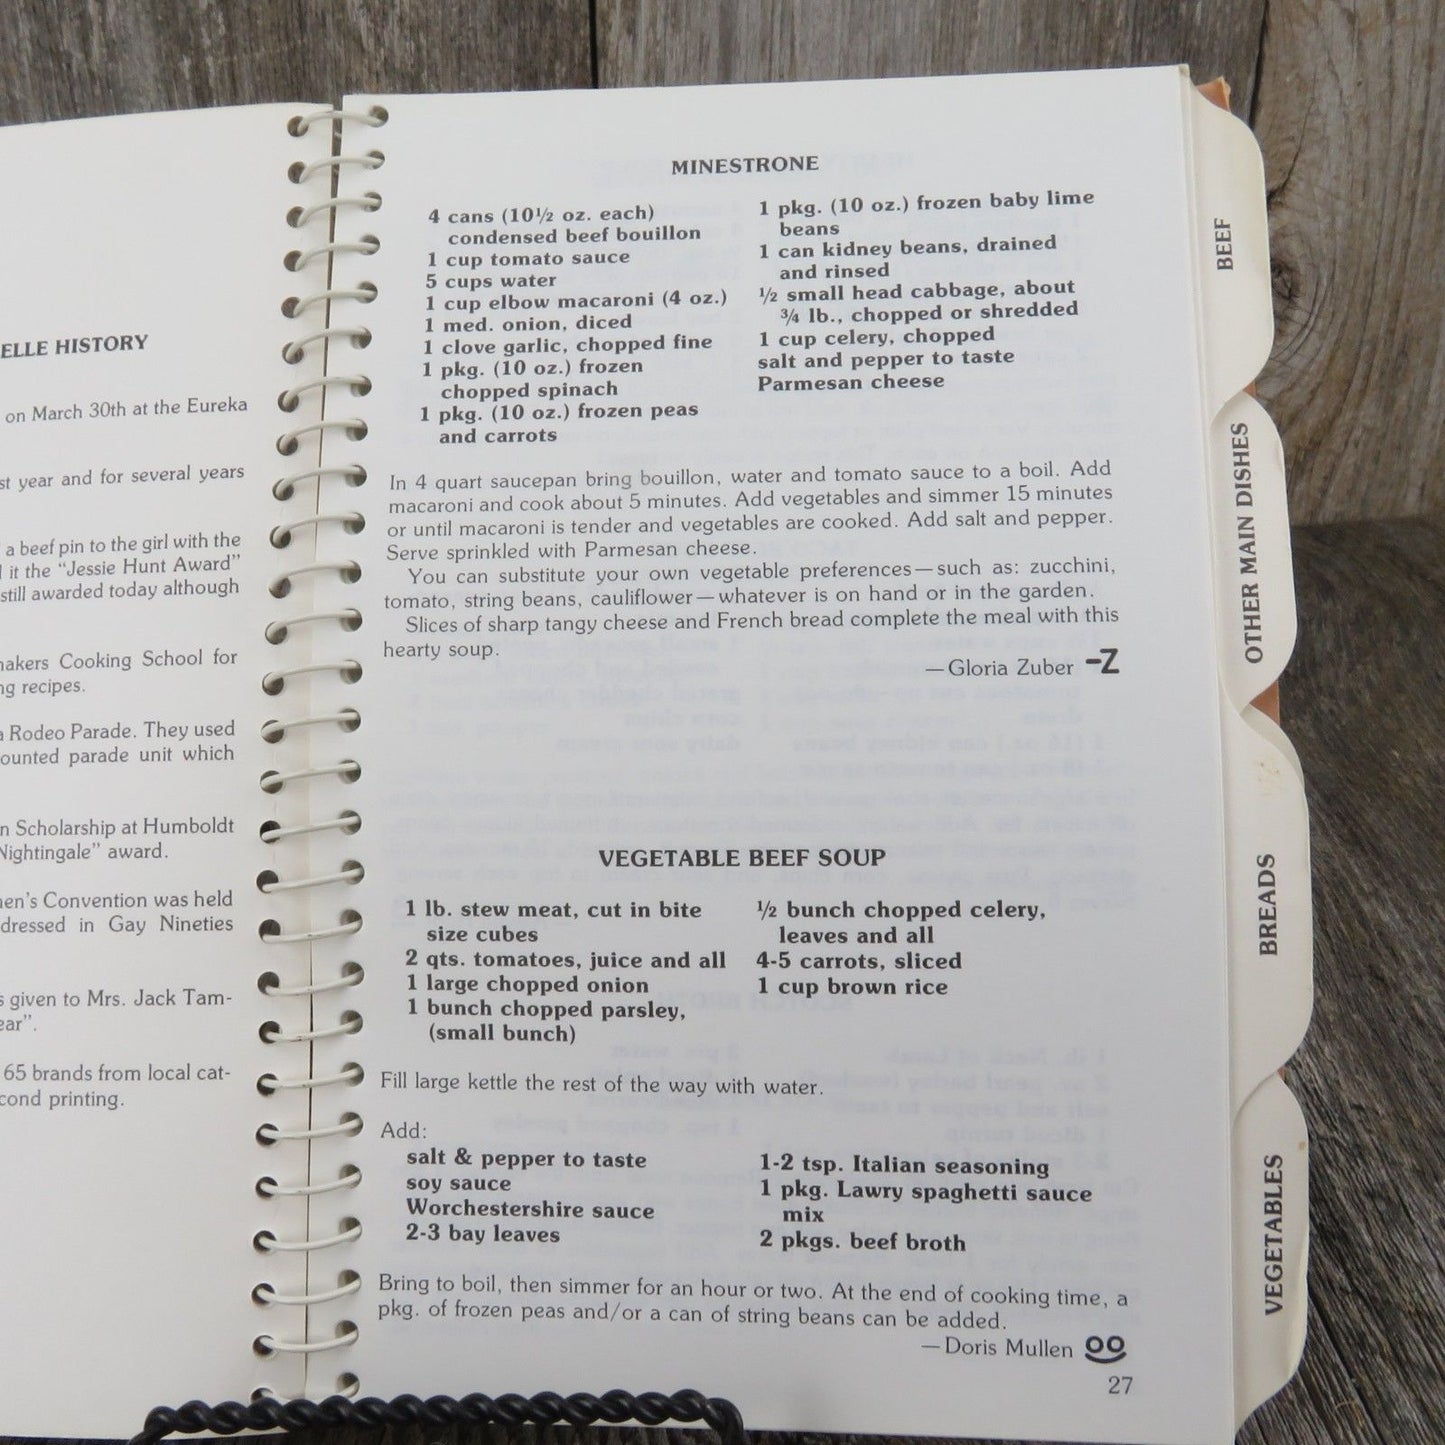 ELLE HISTORY
on March 30th at the Eureka
st year and for several years
a beef pin to the girl with the
it the "Jessie Hunt Award"
still awarded today although
makers Cooking School for
ng recipes.
a Rodeo Parade. They used
ounted parade unit which
n Scholarship at Humboldt
Nightingale" award.
en's Convention was held
dressed in Gay Nineties
s given to Mrs. Jack Tam-
ear".
65 brands from local cat-
cond printing.
MINESTRONE
4 cans (10½ oz. each)
condensed beef bouillon
1 cup tomato sauce
5 cups water
1 cup elbow macaroni (4 oz.)
1 med. onion, diced
1 clove garlic, chopped fine
1 pkg. (10 oz.) frozen
chopped spinach
1 pkg. (10 oz.) frozen peas
and carrots
1 pkg. (10 oz.) frozen baby lime
beans
1 can kidney beans, drained
and rinsed
½ small head cabbage, about
¾ lb., chopped or shredded
1 cup celery, chopped
salt and pepper to taste
Parmesan cheese
In 4 quart saucepan bring bouillon, water and tomato sauce to a boil. Add
macaroni and cook about 5 minutes. Add vegetables and simmer 15 minutes
or until macaroni is tender and vegetables are cooked. Add salt and pepper.
Serve sprinkled with Parmesan cheese.
You can substitute your own vegetable preferences—such as: zucchini,
tomato, string beans, cauliflower—whatever is on hand or in the garden.
Slices of sharp tangy cheese and French bread complete the meal with this
hearty soup.
—Gloria Zuber -Z
VEGETABLE BEEF SOUP
1 lb. stew meat, cut in bite
size cubes
2 qts. tomatoes, juice and all
1 large chopped onion
1 bunch chopped parsley,
(small bunch)
½ bunch chopped celery,
leaves and all
4-5 carrots, sliced
1 cup brown rice
Fill large kettle the rest of the way with water.
Add:
salt & pepper to taste
soy sauce
Worchestershire sauce
2-3 bay leaves
1-2 tsp. Italian seasoning
1 pkg. Lawry spaghetti sauce
mix
2 pkgs. beef broth
Bring to boil, then simmer for an hour or two. At the end of cooking time, a
pkg. of frozen peas and/or a can of string beans can be added.
—Doris Mullen
27
BEEF
OTHER MAIN DISHES
BREADS
VEGETABLES